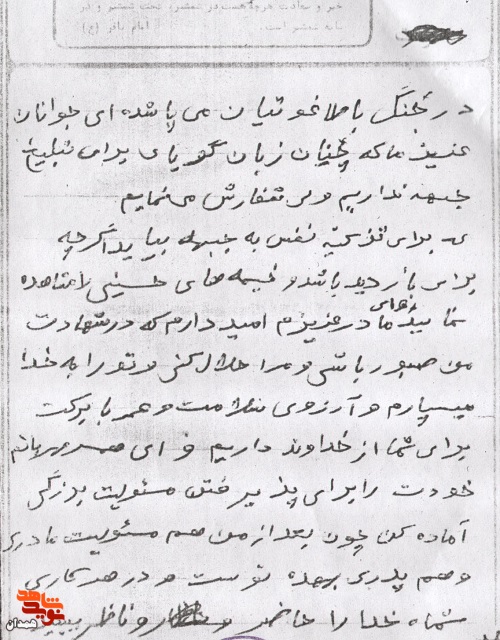 خیر و سعادت هرچه هست در شمشیر، تحت شمشیر و در
سایه شمشیر است. امام باقر (ع)
در جنگ با طاغوتیان می باشد ای جوانان
عزیز ما که چنان زبان گویای برای تبلیغ
جبهه نداریم ولی سفارش می نمایم
که برای تزکیه نفس به جبهه بیاید اگرچه
برای بازدید باشد و خیمه های حسینی را مشاهده
نمائید مادر عزیزم امید دارم که در شهادت
من صبور باشی و مرا حلال کنی و تو را به خدا
میسپارم و آرزوی سلامت و عمر با برکت
برای شما از خداوند داریم و ای همسر مهربانم
خودت را برای پذیرفتن مسئولیت بزرگی
آماده کن چون بعد از من هم مسئولیت مادری
و هم پدری بعهده توست و در هر کاری
شما خدا را حاضر و ناظر ببینید
شاهد
نوید
همدان